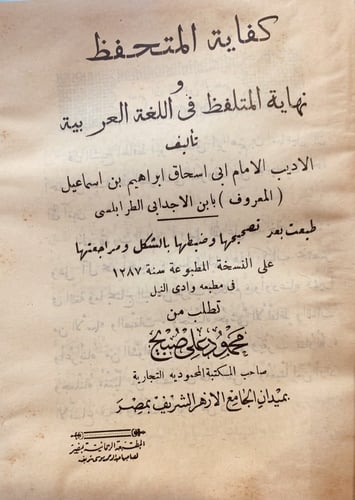 كفاية المتحفظ
و
نهاية المتلفظ فى اللغة العربية
تأليف
الاديب الامام ابى اسحاق ابراهيم بن اسماعيل
(المعروف) بابن الاجدابى الطرابلسى
طبعت بعد تصحيحها وضبطها بالشكل ومراجعتها
على النسخة المطبوعة سنة ١٢٨٧
فى مطبعه وادى النيل
تطلب من
محمود على صبيح
صاحب المكتبة المحموديه التجارية
بميدان الجامع الازهر الشريف بمصر
المطبعة الرحمانية بمصر
لصاحبها عبد الرحمن موسى شريف